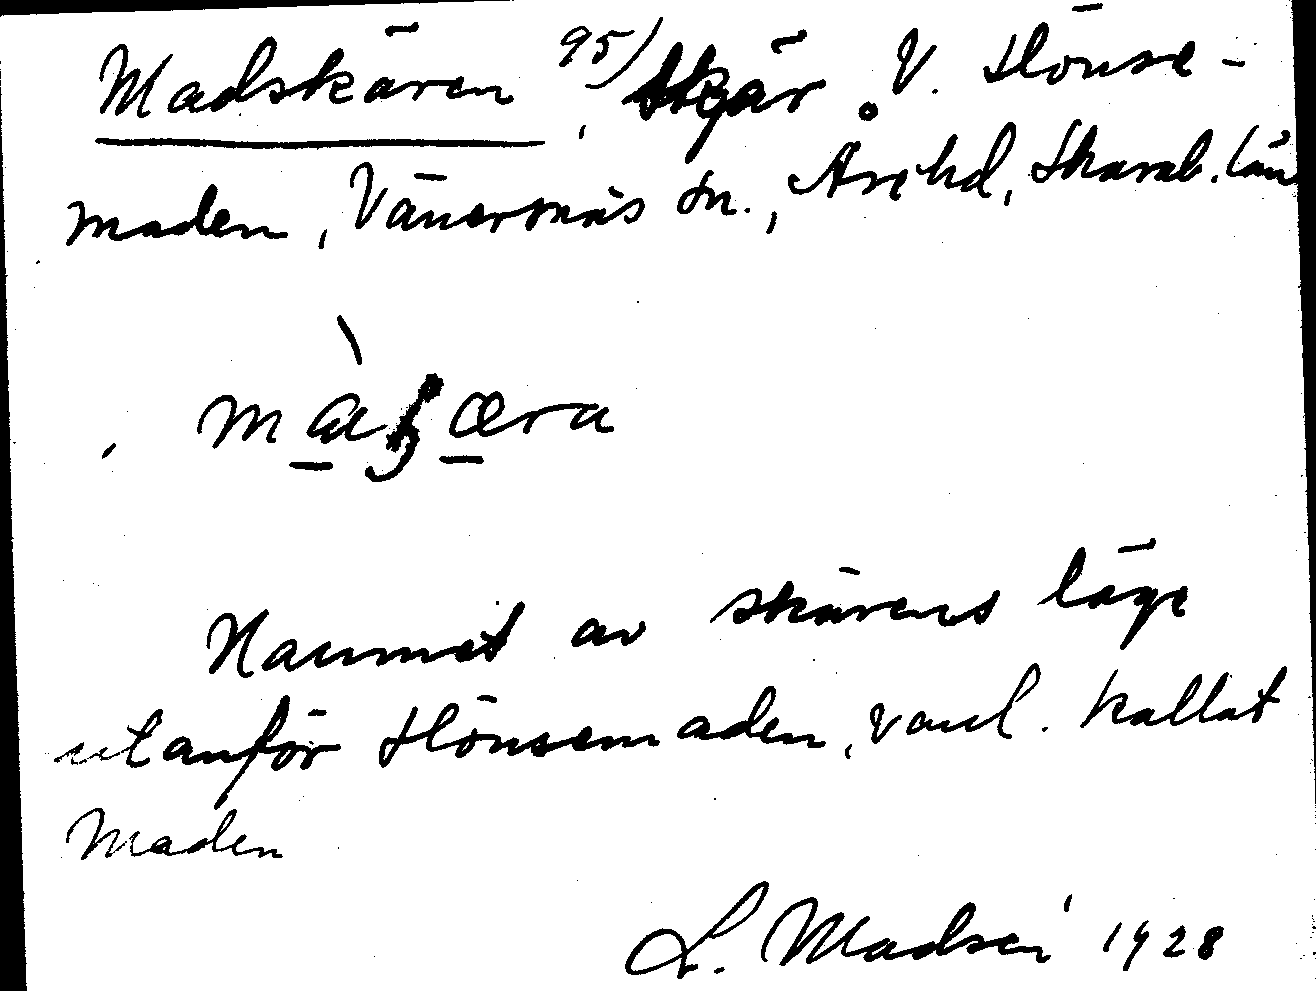 Madskären 95/, Skär V. Hönse-
maden, Vänersnäs sn., Åse hd, Skarab. län
màʃæra
Namnet av skärens läge
utanför Hönsemaden, vanl. kallat
Maden
L. Madsén 1928